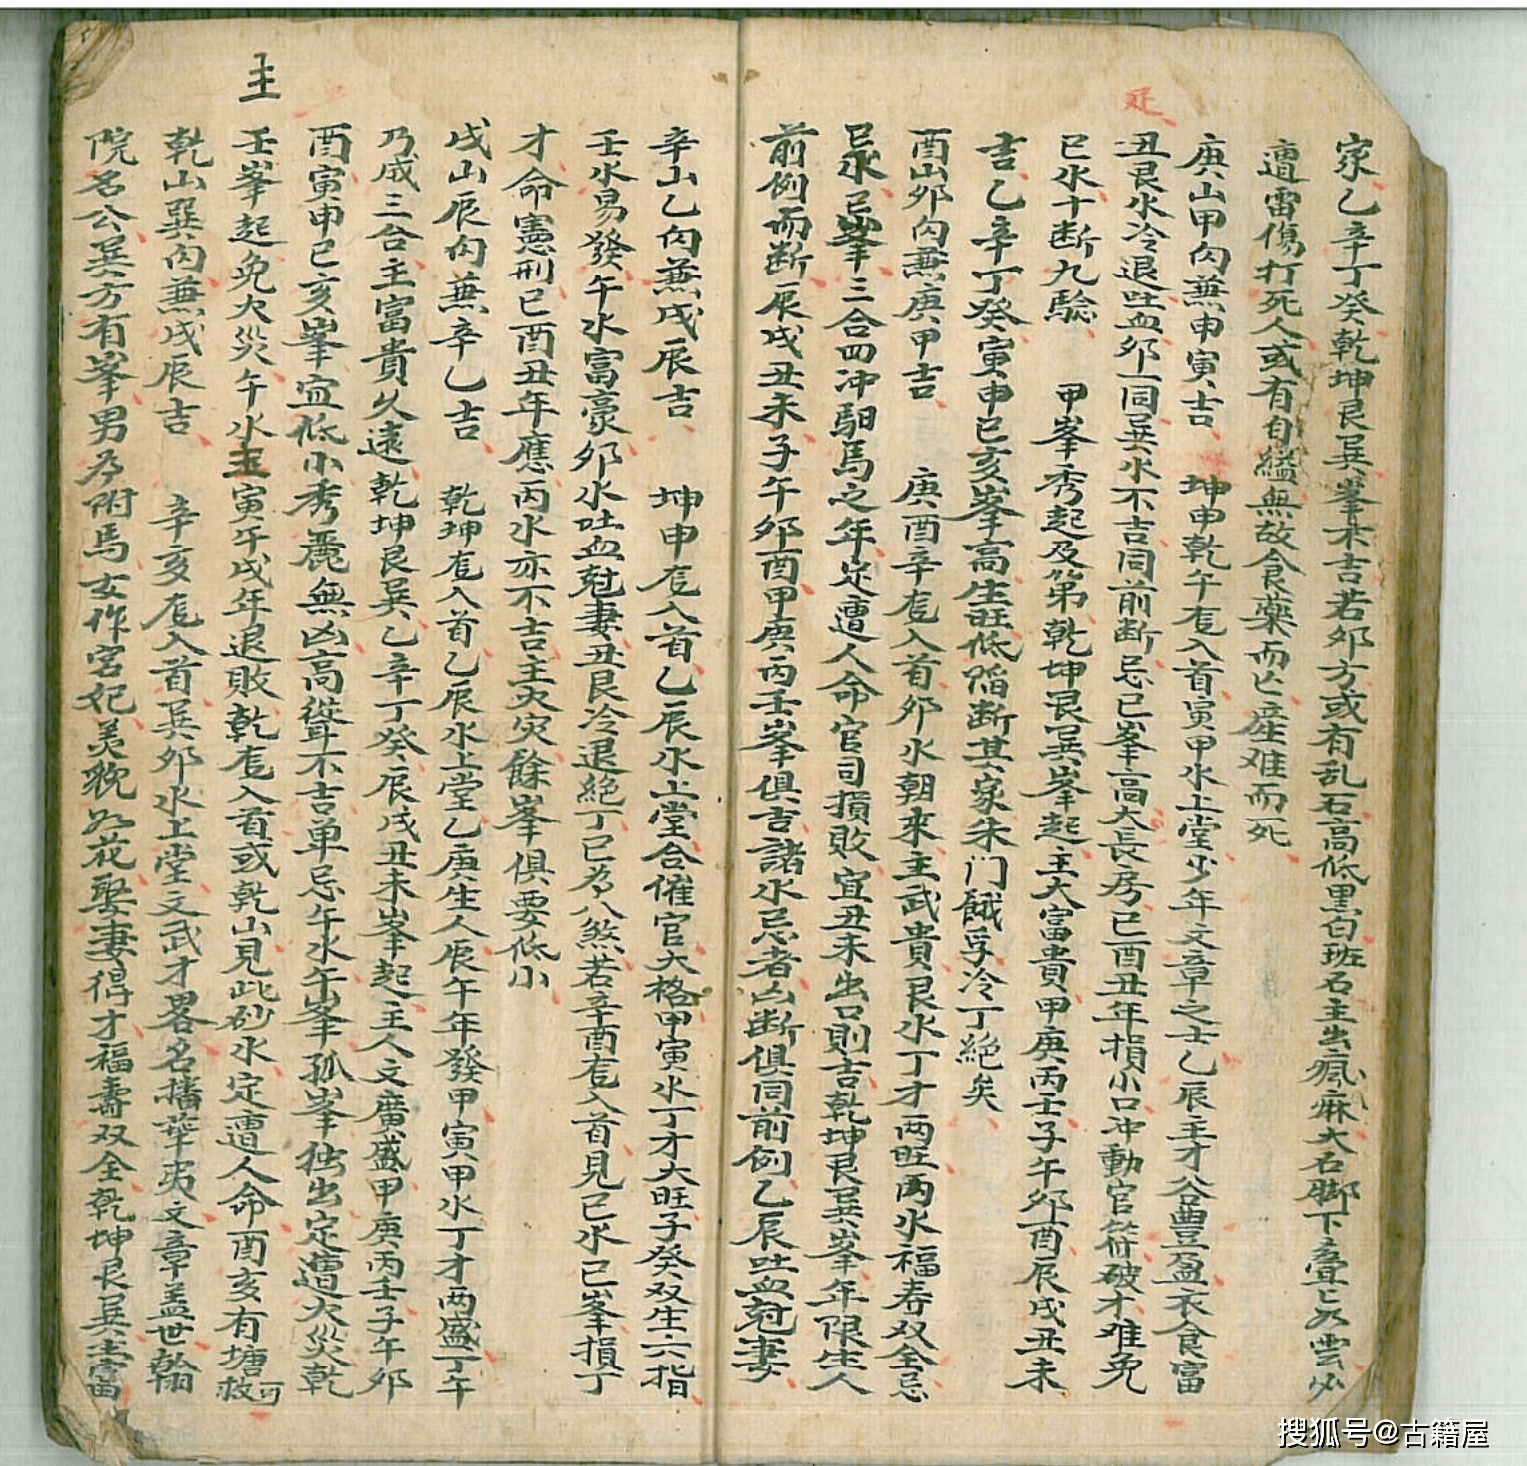 家乙辛丁癸乾坤艮巽峯木吉若卯方或有乱石高低黒白班石主出瘋麻大石脚下 亡如雲必
遭雷傷打死人或有自縊無故食藥而亡産难而死
庚山甲向兼申寅吉 坤申乾午 入首寅甲水上堂少年文章之士乙辰主才谷豊盈衣食富
丑艮水冷退吐血卯一同巽水不吉同前断忌巳峯高大長房巳酉丑年損小口冲動官符破才难免
巳水十断九驗 甲峯秀起及第乾坤艮巽峯起主大富貴甲庚丙壬子午卯酉辰戌丑未
吉乙辛丁癸寅申巳亥峯高生旺低陷断其家朱门餓孚冷丁絶矣
酉山卯向兼庚甲吉 庚酉辛 入首卯水朝来主武貴艮水丁才两旺丙水福寿双全忌
巳水巳峯三合四冲馹馬之年定遭人命官司損敗宜丑未出口則吉乾坤艮巽峯年限生人
前例而断辰戌丑未子午卯酉甲庚丙壬峯俱吉諸水忌者凶断俱同前例乙辰吐血尅妻
辛山乙向兼戌辰吉 坤申 入首乙辰水上堂合催官大格甲寅水丁才大旺子癸双生六指
壬水易發午水富豪卯水吐血尅妻丑艮冷退絶丁巳為八煞若辛酉 入首見巳水巳峯損丁
才命憲刑巳酉丑年應丙水亦不吉主火灾餘峯俱要低小
戌山辰向兼辛乙吉 乾坤 入首乙辰水上堂乙庚生人辰午年發甲寅甲水丁才两盛丁午
乃成三台主富貴久遠乾坤艮巽乙辛丁癸辰戌丑未峯起主人文廣盛甲庚丙壬子午卯
酉寅申巳亥峯宜低小秀麗無凶高聳不吉单忌午水午峯孤峯独出定遭火災乾
主
壬峯起免火災午水主寅午戌年退敗乾 入首或乾山見此砂水定遭人命酉亥有塘可救
乾山巽向兼戌辰吉 辛亥 入首巽卯水上堂文武才畧名播華夷文章盖世翰
院名公巽方有峯男為附馬女作宮妃美貌如花娶妻得才福壽双全乾坤艮巽主富
搜狐号@古籍屋